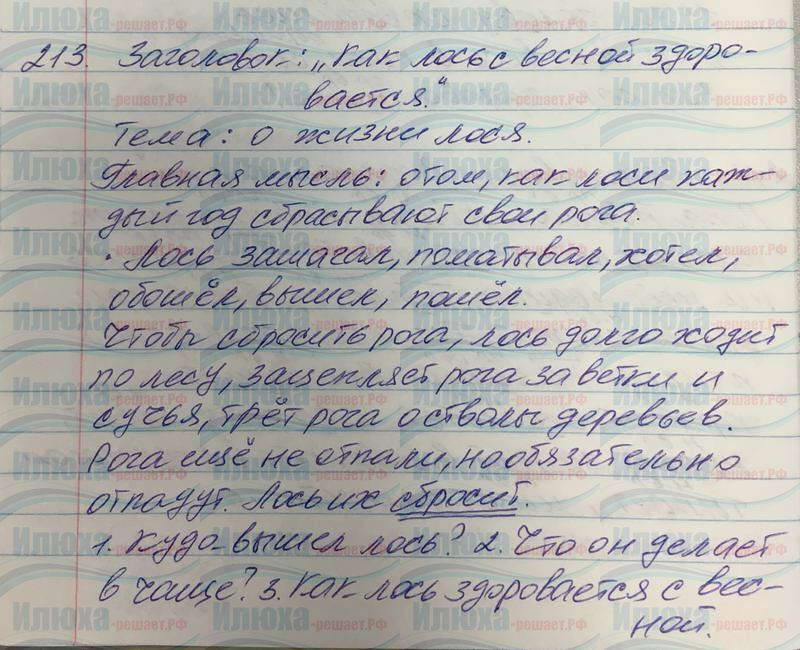 213. Заголовок: „Как лось с весной здоро-
вается."
Тема: о жизни лося.
Главная мысль: о том, как лоси каж-
дый год сбрасывают свои рога.
· Лось зашагал, поматывал, хотел,
обошёл, вышел, пошёл.
Чтобы сбросить рога, лось долго ходит
по лесу, зацепляет рога за ветки и
сучья, трёт рога о стволы деревьев.
Рога ещё не отпали, но обязательно
отпадут. Лось их сбросит.
1. Куда вышел лось? 2. Что он делает
в чаще? 3. Как лось здоровается с вес-
ной.
Илюха-решает.РФ